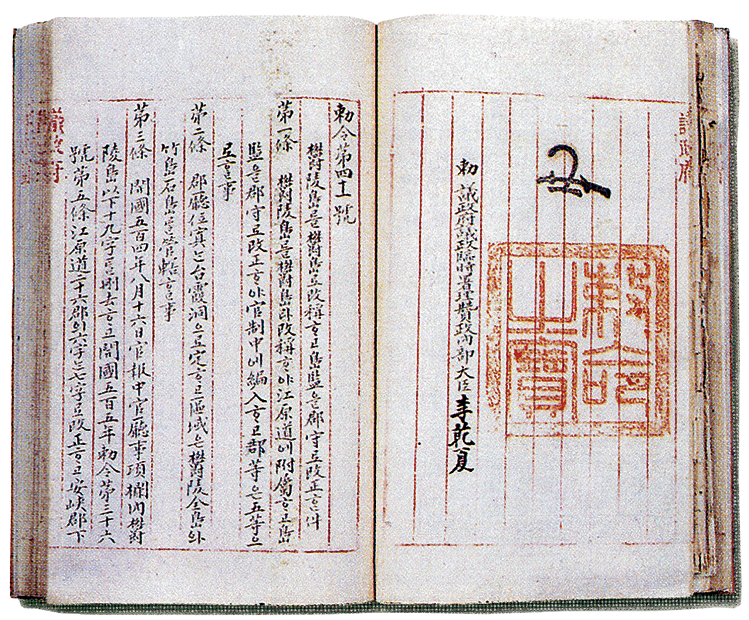 議政府
勅命之寶
勅 議政府議政臨時署理贊政內部大臣 李乾夏
勅令第四十一號
鬱陵島를鬱島로改稱ᄒᆞ고島監을郡守로改正ᄒᆞᆫ件
第一條 鬱陵島를鬱島라改稱ᄒᆞ야江原道에附屬ᄒᆞ고島
監을郡守로改正ᄒᆞ야官制中에編入ᄒᆞ고郡等은五等으
로ᄒᆞᆯ事
第二條 郡廳位寘ᄂᆞᆫ台霞洞으로定ᄒᆞ고區域은鬱陵全島와
竹島石島ᄅᆞᆯ管轄ᄒᆞᆯ事
第三條 開國五百四年八月十六日官報中官廳事項欄內鬱
陵島以下十九字ᄅᆞᆯ刪去ᄒᆞ고開國五百五年勅令第三十六
號第五條江原道二十六郡의六字ᄂᆞᆫ七字로改正ᄒᆞ고安峽郡下
議政府